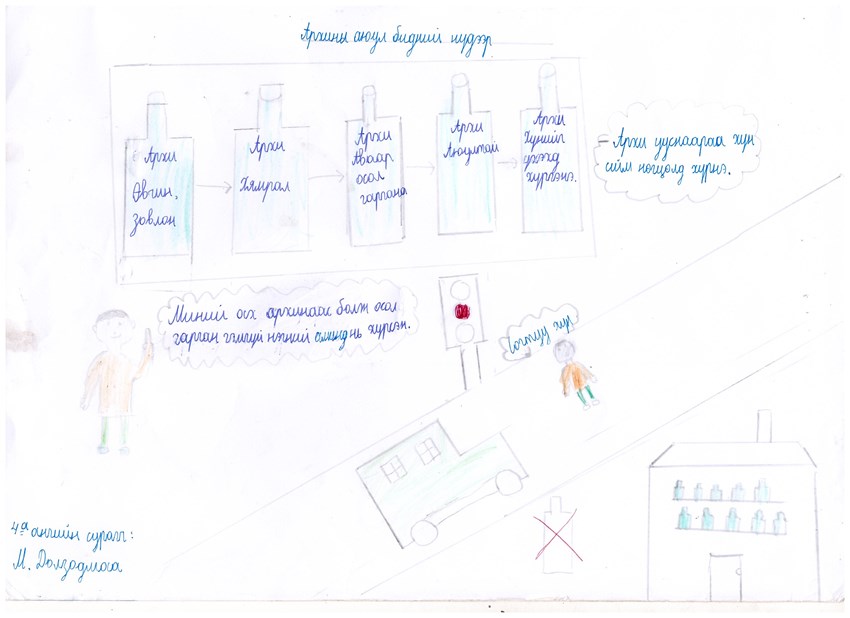 Архины аюул бидний нүдээр
Архи
Өвчин,
зовлон
Архи
Хямрал
Архи
Аваар
осол
гаргана
Архи
Аюултай
Архи
Хүнийг
үхэлд
хүргэнэ.
= Архи ууснаараа хүн
ийм ногцолд хүрнэ.
Миний ах архинаас болж осол
гарган гэмгүй нэгний аминд нь хүрсэн.
Согтуу хүн
4ª ангийн сурагч:
М. Долзодмаа